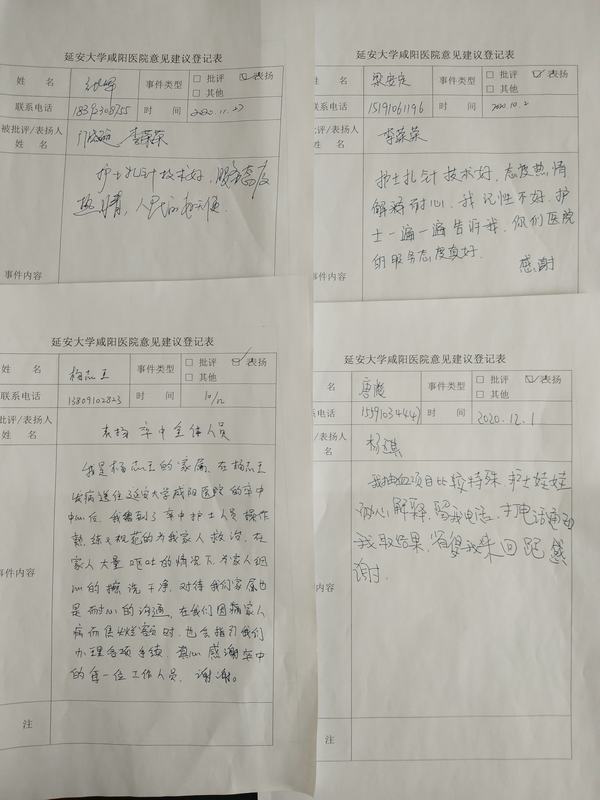 延安大学咸阳医院意见建议登记表
姓 名
事件类型
□ 批评 ☑ 表扬
□ 其他
联系电话
18392308755
时 间
2020.11.27
被批评/表扬人
姓 名
李荣荣
护士扎针技术好,服务态度
热情,
事件内容
延安大学咸阳医院意见建议登记表
姓 名
梁安定
事件类型
□ 批评 ☑ 表扬
□ 其他
联系电话
15191061196
时 间
2020.10.2
被批评/表扬人
姓 名
李荣荣
护士扎针技术好,态度热情
解释耐心,我记性不好,护
士一遍一遍告诉我,你们医院
的服务态度真好.
感谢
事件内容
延安大学咸阳医院意见建议登记表
姓 名
杨志王
事件类型
□ 批评 ☑ 表扬
□ 其他
联系电话
13809102823
时 间
10/12
批评/表扬人
姓 名
表扬 卒中全体人员
我是杨志王的家属,在杨志王
发病送往延安大学咸阳医院的卒中
中心位,我看到了卒中护士人员操作
熟练规范的为我家人救治,在
家人大量呕吐的情况下,为家人细
心的擦洗干净,对待我们家属也
是耐心的沟通,在我们因病家人
病而焦烂额时,也会指引我们
办理各项手续,真心感谢卒中
的每一位工作人员,谢谢。
事件内容
注
延安大学咸阳医院意见建议登记表
名
唐彪
事件类型
□ 批评 ☑ 表扬
□ 其他
系电话
15191034447
时 间
2020.12.1
/表扬人
名
杨琪
我抽血项目比较特殊,护士娃娃
耐心解释,留我电话,打电话通知
我取结果,省得我来回跑,感
谢.
事件内容
注